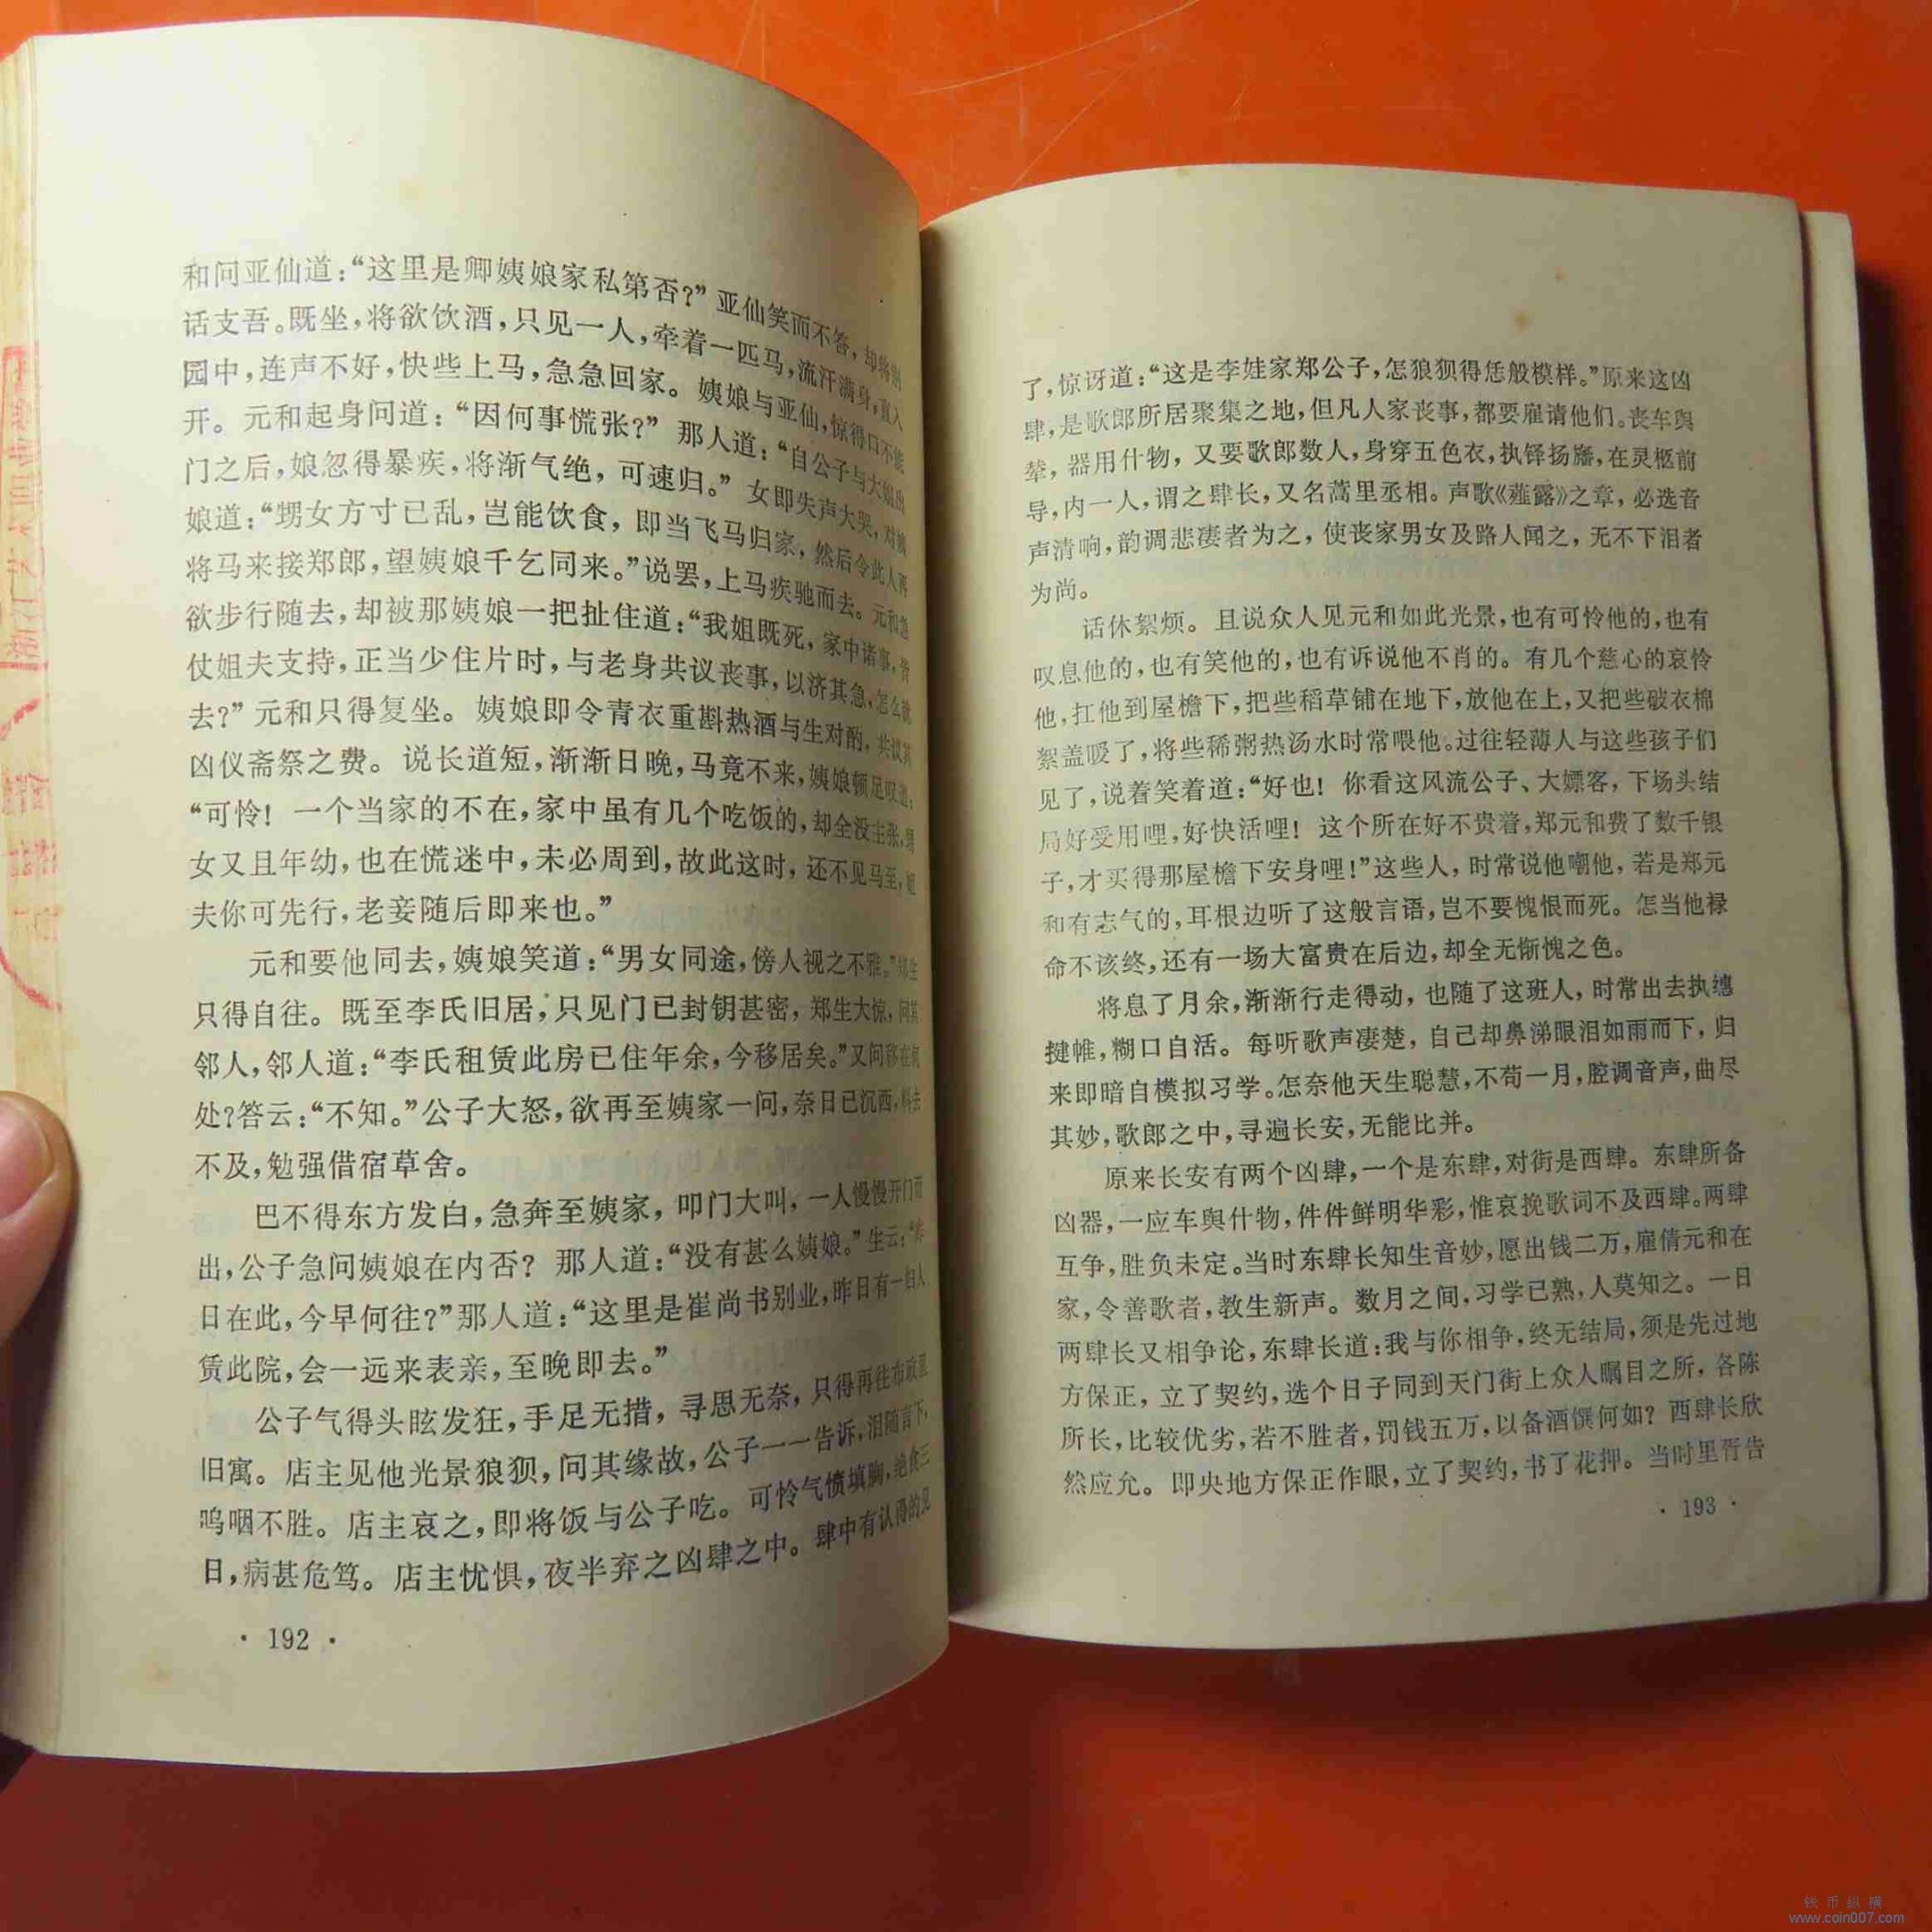 和问亚仙道：“这里是卿姨娘家私第否？”亚仙笑而不答，却将别
话支吾。既坐，将欲饮酒，只见一人，牵着一匹马，流汗满身，直入
园中，连声不好，快些上马，急急回家。姨娘与亚仙，惊得口不能
开。元和起身问道：“因何事慌张？”那人道：“自公子与大姐出
门之后，娘忽得暴疾，将渐气绝，可速归。”女即失声大哭，对姨
娘道：“甥女方寸已乱，岂能饮食，即当飞马归家，然后令此人再
将马来接郑郎，望姨娘千乞同来。”说罢，上马疾驰而去。元和急
欲步行随去，却被那姨娘一把扯住道：“我姐既死，家中诸事，皆
仗姐夫支持，正当少住片时，与老身共议丧事，以济其急，怎么就
去？”元和只得复坐。姨娘即令青衣重斟热酒与生对酌，共议其
凶仪斋祭之费。说长道短，渐渐日晚，马竟不来，姨娘顿足叹道：
“可怜！一个当家的不在，家中虽有几个吃饭的，却全没主张，甥
女又且年幼，也在慌迷中，未必周到，故此这时，还不见马至，姐
夫你可先行，老妾随后即来也。”
元和要他同去，姨娘笑道：“男女同途，傍人视之不雅。”郑生
只得自往。既至李氏旧居，只见门已封钥甚密，郑生大惊，问其
邻人，邻人道：“李氏租赁此房已住年余，今移居矣。”又问移在何
处？答云：“不知。”公子大怒，欲再至姨家一问，奈日已沉西，料去
不及，勉强借宿草舍。
巴不得东方发白，急奔至姨家，叩门大叫，一人慢慢开门而
出，公子急问姨娘在内否？那人道：“没有甚么姨娘。”生云：“昨
日在此，今早何往？”那人道：“这里是崔尚书别业，昨日有一妇人
赁此院，会一远来表亲，至晚即去。”
公子气得头眩发狂，手足无措，寻思无奈，只得再往布政里
旧寓。店主见他光景狼狈，问其缘故，公子一一告诉，泪随言下，
呜咽不胜。店主哀之，即将饭与公子吃。可怜气愤填胸，绝食三
日，病甚危笃。店主忧惧，夜半弃之凶肆之中。肆中有认得的见
· 192 ·
了，惊讶道：“这是李娃家郑公子，怎狼狈得恁般模样。”原来这凶
肆，是歌郎所居聚集之地，但凡人家丧事，都要雇请他们。丧车舆
辇，器用什物，又要歌郎数人，身穿五色衣，执铎扬旛，在灵柩前
导，内一人，谓之肆长，又名蒿里丞相。声歌《薤露》之章，必选音
声清响，韵调悲凄者为之，使丧家男女及路人闻之，无不下泪者
为尚。
话休絮烦。且说众人见元和如此光景，也有可怜他的，也有
叹息他的，也有笑他的，也有诉说他不肖的。有几个慈心的哀怜
他，扛他到屋檐下，把些稻草铺在地下，放他在上，又把些破衣棉
絮盖暖了，将些稀粥热汤水时常喂他。过往轻薄人与这些孩子们
见了，说着笑着道：“好也！你看这风流公子、大嫖客，下场头结
局好受用哩，好快活哩！这个所在好不贵着，郑元和费了数千银
子，才买得那屋檐下安身哩！”这些人，时常说他嘲他，若是郑元
和有志气的，耳根边听了这般言语，岂不要愧恨而死。怎当他禄
命不该终，还有一场大富贵在后边，却全无惭愧之色。
将息了月余，渐渐行走得动，也随了这班人，时常出去执繐
揵帷，糊口自活。每听歌声凄楚，自己却鼻涕眼泪如雨而下，归
来即暗自模拟习学。怎奈他天生聪慧，不苟一月，腔调音声，曲尽
其妙，歌郎之中，寻遍长安，无能比并。
原来长安有两个凶肆，一个是东肆，对街是西肆。东肆所备
凶器，一应车舆什物，件件鲜明华彩，惟哀挽歌词不及西肆。两肆
互争，胜负未定。当时东肆长知生音妙，愿出钱二万，雇倩元和在
家，令善歌者，教生新声。数月之间，习学已熟，人莫知之。一日
两肆长又相争论，东肆长道：我与你相争，终无结局，须是先过地
方保正，立了契约，选个日子同到天门街上众人瞩目之所，各陈
所长，比较优劣，若不胜者，罚钱五万，以备酒馔何如？西肆长欣
然应允。即央地方保正作眼，立了契约，书了花押。当时里胥告
· 193 ·
钱币纵横
www.coin007.com